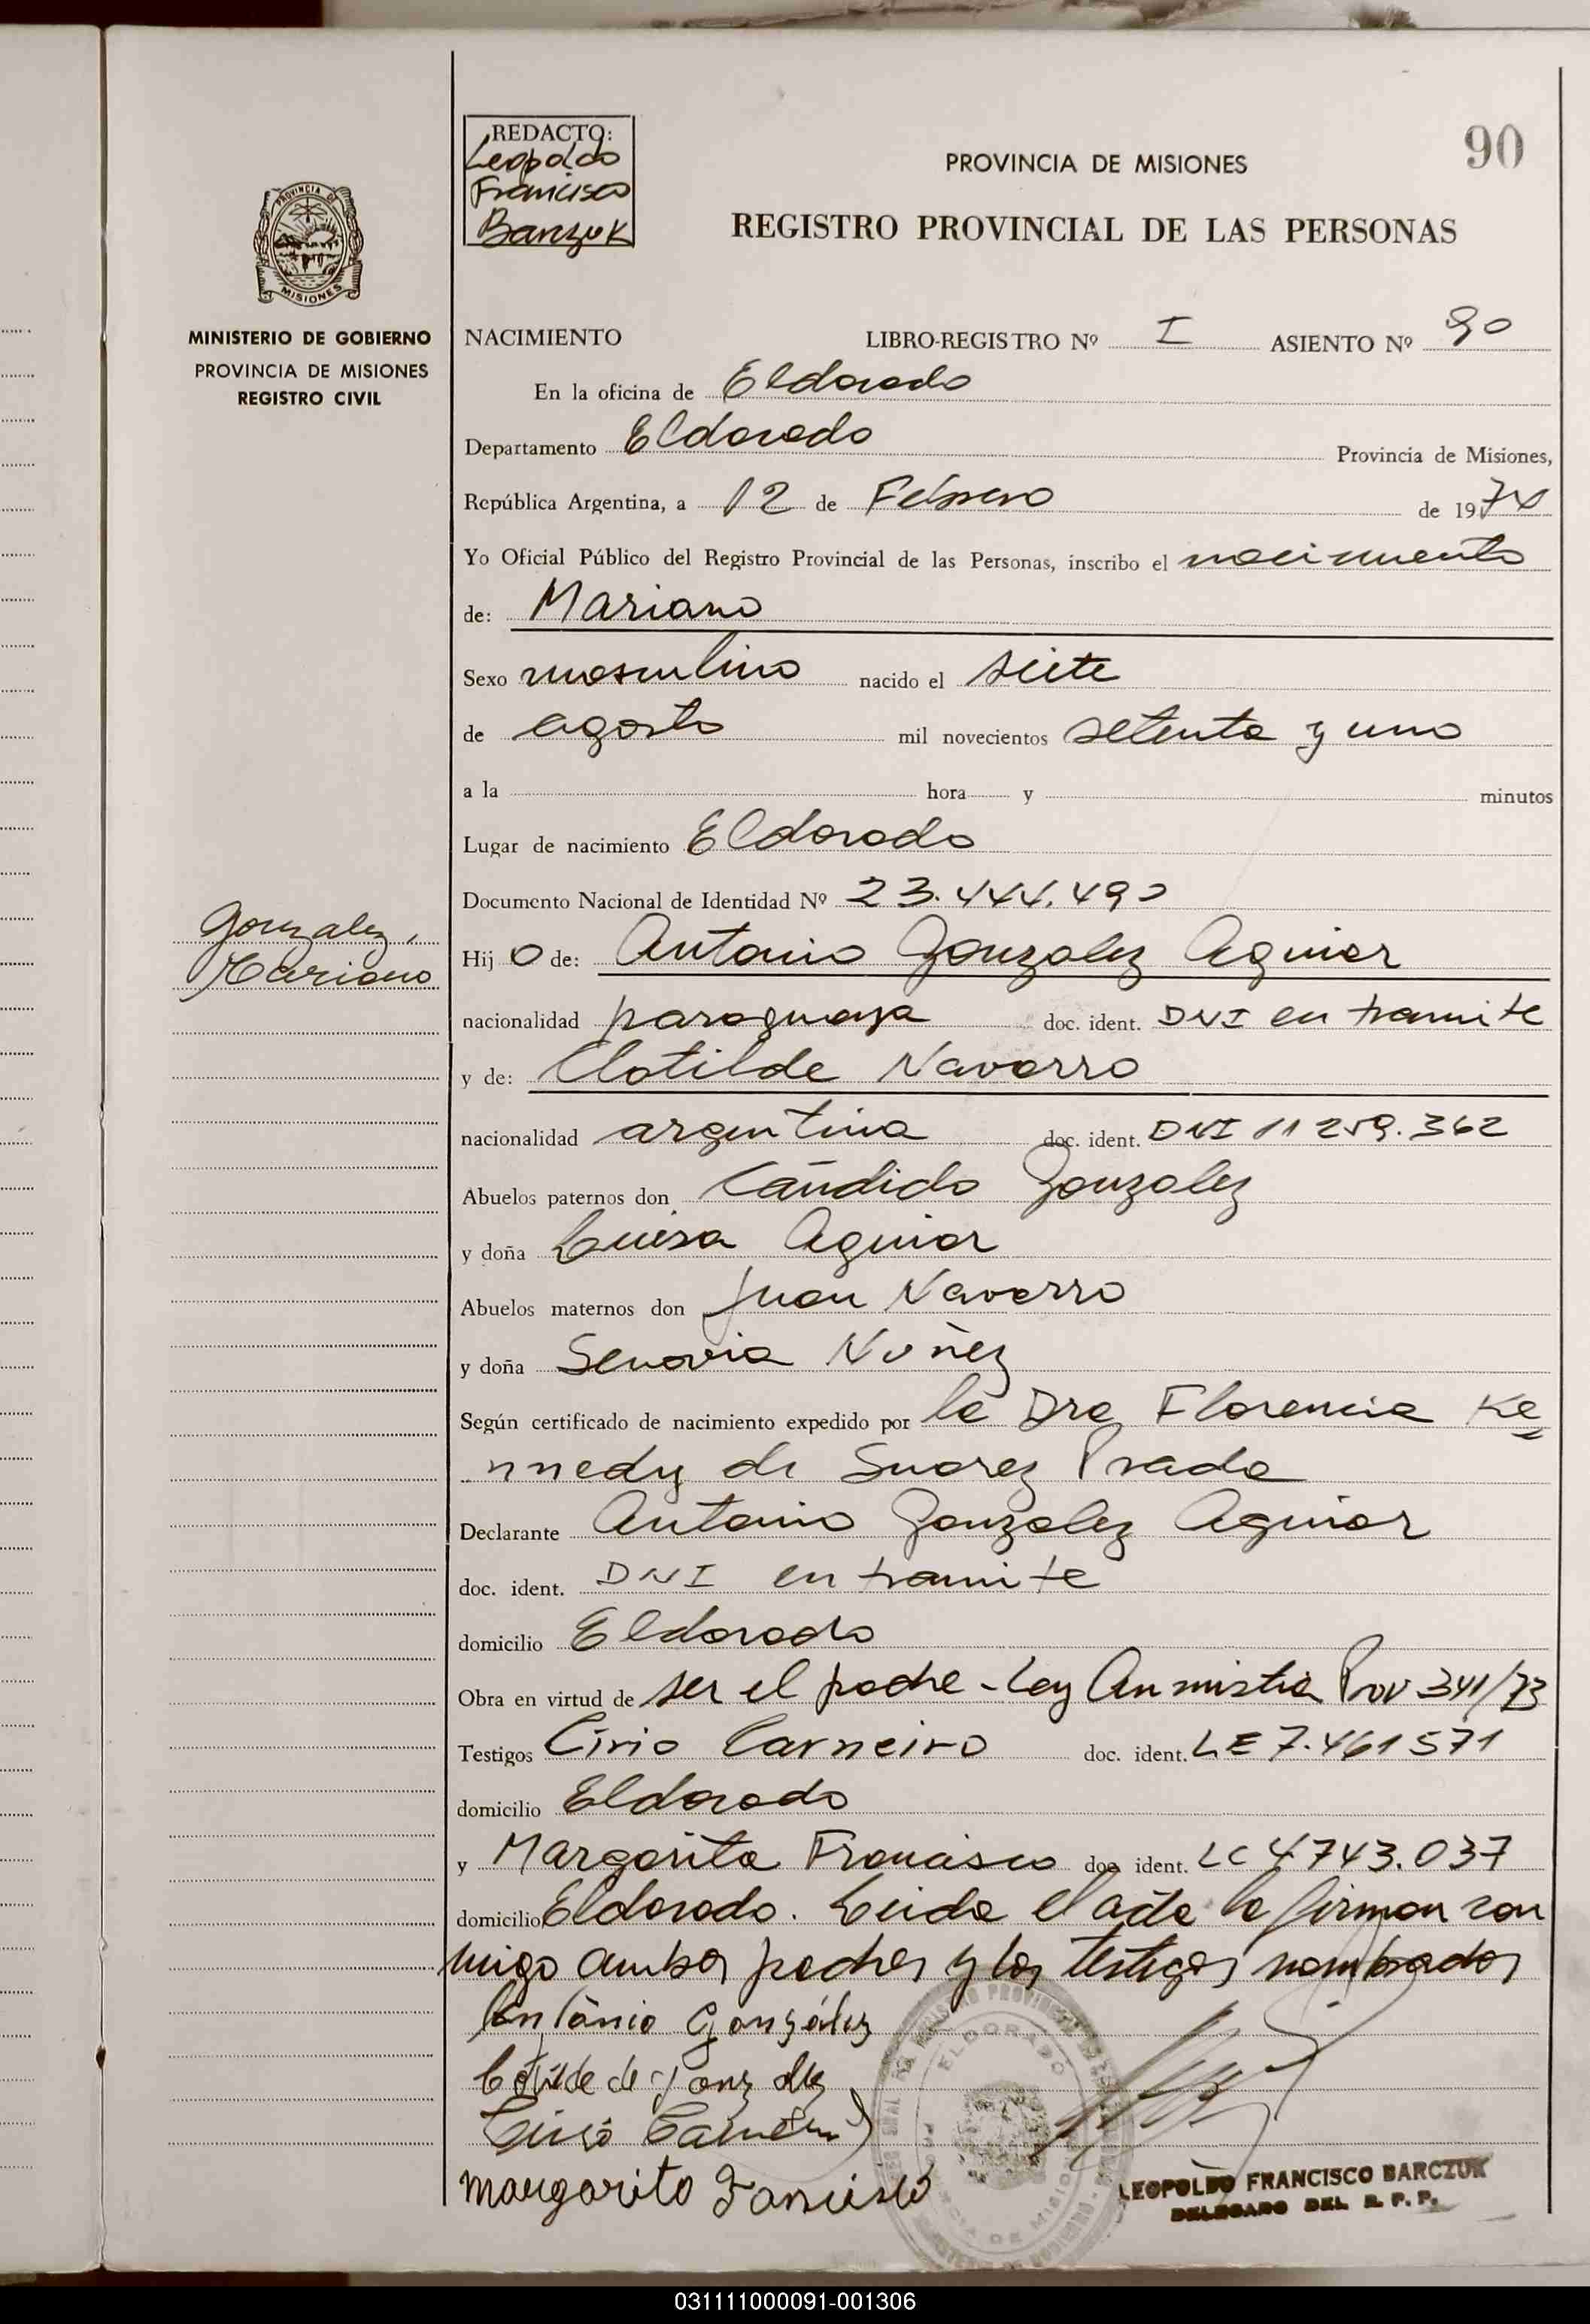 90
REDACTO:
Leopoldo
Francisco
Barczuk
PROVINCIA DE MISIONES
REGISTRO PROVINCIAL DE LAS PERSONAS
PROVINCIA DE
MISIONES
MINISTERIO DE GOBIERNO
PROVINCIA DE MISIONES
REGISTRO CIVIL
NACIMIENTO LIBRO-REGISTRO Nº I ASIENTO Nº 90
En la oficina de Eldorado
Departamento Eldorado Provincia de Misiones,
República Argentina, a 12 de Febrero de 1974
Yo Oficial Público del Registro Provincial de las Personas, inscribo el nacimiento
de: Mariano
Sexo masculino nacido el siete
de agosto mil novecientos setenta y uno
a la hora y minutos
Lugar de nacimiento Eldorado
Documento Nacional de Identidad Nº 23.444.490
Gonzalez,
Mariano
Hij o de: Antonio Gonzalez Aguiar
nacionalidad paraguaya doc. ident. DNI en tramite
y de: Clotilde Navarro
nacionalidad argentina doc. ident. DNI 11 259.362
Abuelos paternos don Cándido Gonzalez
y doña Luisa Aguiar
Abuelos maternos don Juan Navarro
y doña Senovia Nuñez
Según certificado de nacimiento expedido por la Dra Florencia Ke=
nnedy de Suarez Prada
Declarante Antonio Gonzalez Aguiar
doc. ident. DNI en tramite
domicilio Eldorado
Obra en virtud de ser el padre - Ley Anmistia Prov 341/73
Testigos Cirio Carneiro doc. ident. LE 7.461571
domicilio Eldorado
y Margarita Francisco doc ident. LC 4743.037
domicilio Eldorado. Leida el acta la firman con
migo ambos padres y los testigos nombrados
Antánio González
Cotilde de Gonzalez
Cirio Carneiro
Margarito Francisco
ELDORADO
LEOPOLDO FRANCISCO BARCZUK
DELEGADO DEL R. P. P.
031111000091-001306